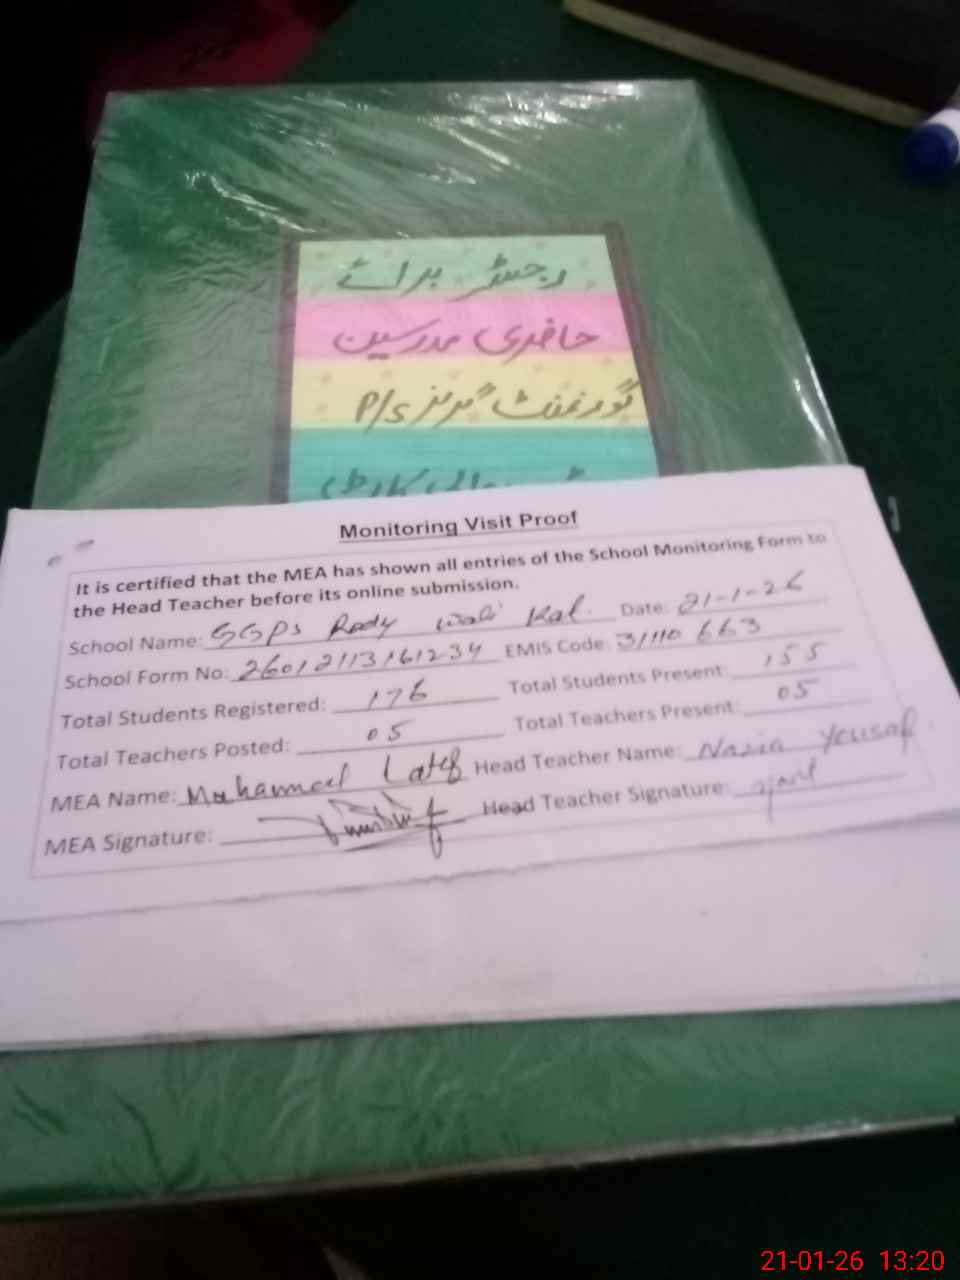 رجسٹر برائے
حاضری مدرسین
گورنمنٹ گرلز P/S
والی
Monitoring Visit Proof
It is certified that the MEA has shown all entries of the School Monitoring Form to
the Head Teacher before its online submission.
School Name: GGPS Rody Wali Kal. Date: 21-1-26
School Form No: 26012113161234 EMIS Code: 31110 663
Total Students Registered: 176 Total Students Present: 155
Total Teachers Posted: 05 Total Teachers Present: 05
MEA Name: Muhammad Latif Head Teacher Name: Nazia Yousaf.
MEA Signature: Head Teacher Signature:
21-01-26 13:20